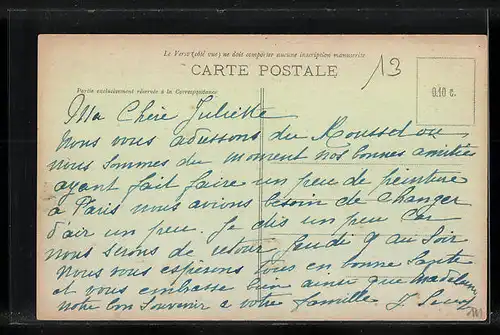 Le Verso (côté vue) ne doit comporter aucune inscription manuscrite
CARTE POSTALE
13
Partie exclusivement réservée à la Correspondance
0.10 c.
Ma Chère Juliette
Nous vous adressons du Rousset ou
nous sommes du moment nos bonnes amitiés
ayant fait faire un peu de peinture
a Paris nous avions besoin de changer
d'air un peu. Je dis un peu Car
nous serons de retour Jeudi 9 au Soir
Nous vous espérons tous en bonne Santé
et vous embrasse bien ainsi que Madeleine
notre bon Souvenir a votre famille